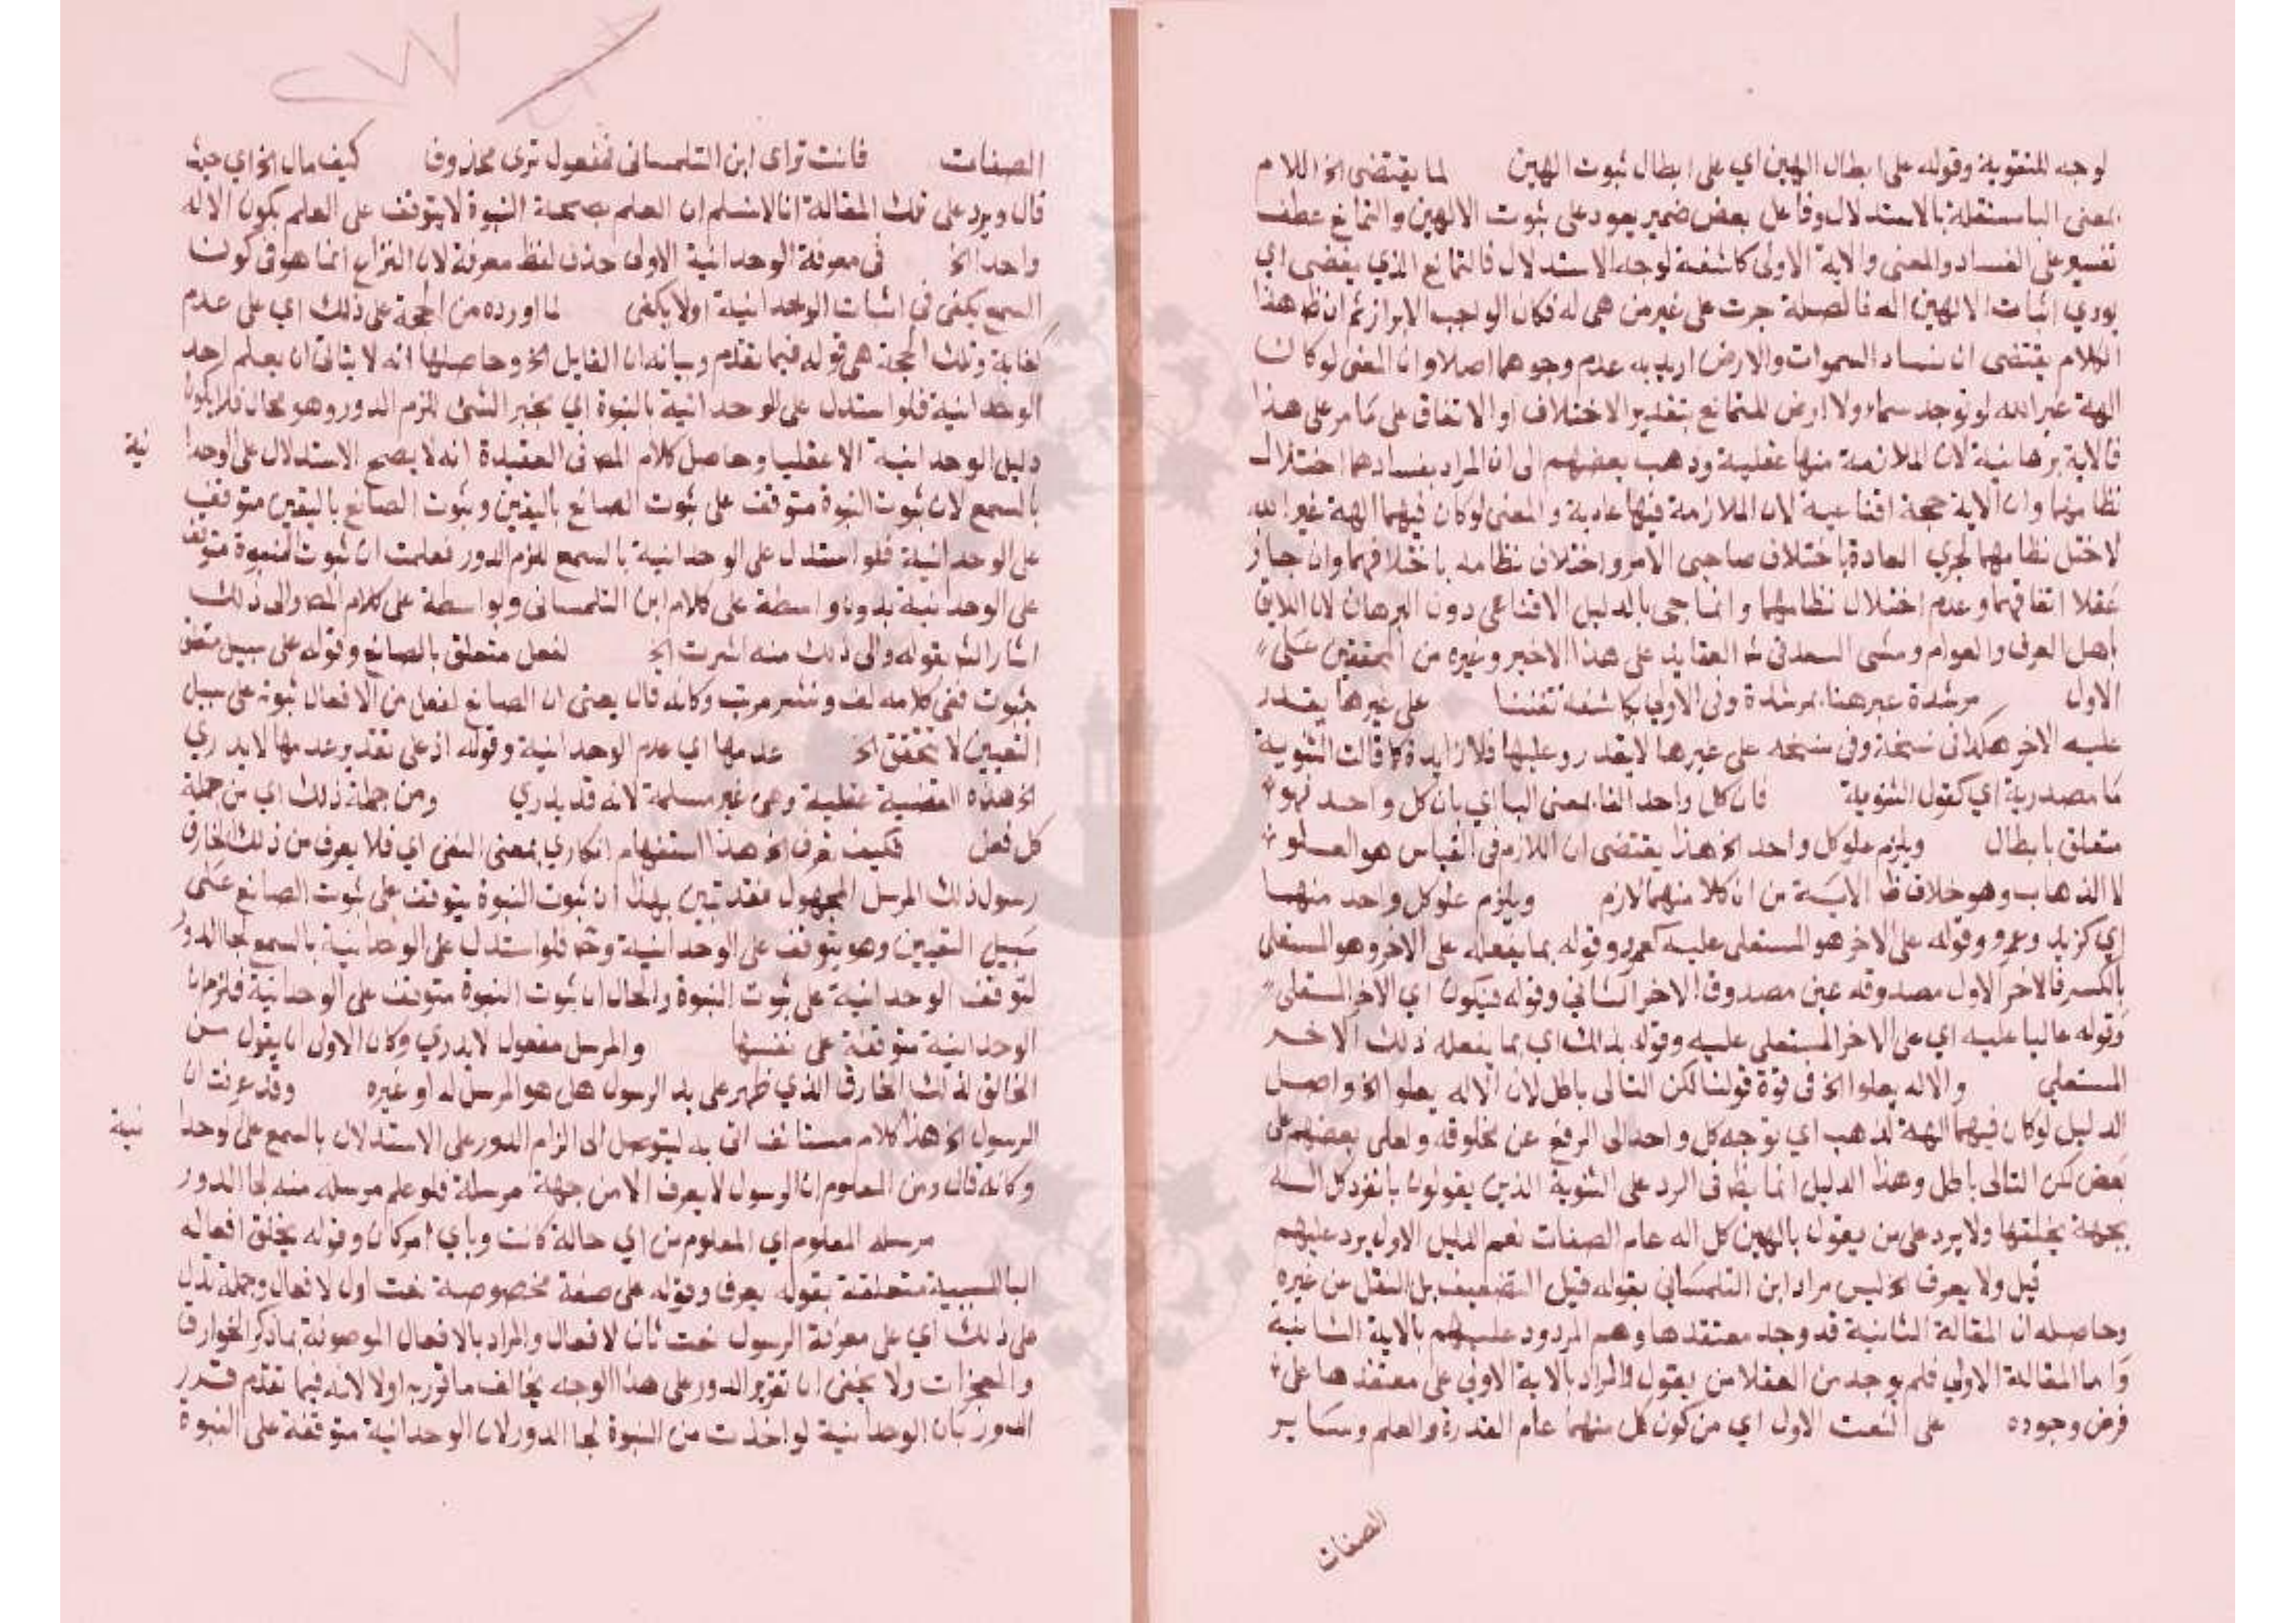 لوجه المتقوية وقوله على ابطال الهين اي على ابطال ثبوت الهين لما يقتضى الخ اللام
بمعنى البا متعلقة بالاستدلال وفاعل بعض ضمير يعود على ثبوت الالهين والتمانع عطف
تفسير على الفساد والمعنى والاية الاولى كاشفة لوجه الاستدلال فالتمانع الذي يفضى اي
يودي اثبات الالهين اله فالصلة جرت على غير من هى له فكان الواجب الابراز ثم ان ظ هذا
الكلام يقتضى ان فساد السموات والارض اريد به عدم وجودهما اصلا وان المعنى لو كان
الهة غير الله لم توجد سماء ولا ارض للتمانع بتقدير الاختلاف او الاتفاق على ما مر على هذا
فالاية برهانية لان الملازمة منها عقلية وذهب بعضهم الى ان المراد بفسادهما اختلال
نظامهما وان الاية حجة اقناعية لان الملازمة فيها عادية والمعنى لو كان فيهما الهة غير الله
لاختل نظامهما لجري العادة باختلاف صاحبى الامر واختلاف نظامه باختلافهما وان جاز
عقلا اتفاقهما وعدم اختلال نظامهما وانما جى بالدليل الاقناعى دون البرهان لان اللايق
باهل العرف والعوام ومشى السعد فى شرح العقايد على هذا الاخير وغيره من المحققين على
الاول مرشدة عبر هنا بمرشدة وفى الاولى بكاشفة تفننا على غيرها يقدر
عليه الاخر هكذا فى نسخة وفى نسخه على غيرها لا يقدر وعليها فلا زايدة كما قالت الثنوية
ما مصدرية اي كقول الثنوية فان كل واحد الفا بمعنى البا اي بان كل واحد فهو
متعلق بابطال ويلزم علو كل واحد الخ هذا يقتضى ان اللازم فى القياس هو العلو
لا الذهاب وهو خلاف ظ الاية من ان كلا منهما لازم ويلزم علو كل واحد منهما
اي كزيد وعمرو وقوله على الاخر هو المستعلى عليه كعمرو وقوله بما يفعله على الاخر وهو المستعلى
بالكسر فالاخر الاول مصدوقه عين مصدوق الاخر الثاني وقوله فيكون اي الاخر المستعلى
وقوله عاليا عليه اي على الاخر المستعلى عليه وقوله بذالك اي بما يفعله ذلك الاخر
المستعلى والاله يعلوا الخ فى قوة قولنا لكن التالى باطل لان الاله يعلوا الخ واصل
الدليل لو كان فيهما الهة لذهب اي توجه كل واحد الى الرفع عن مخلوقه ولعلى بعضهم على
بعض لكن التالى باطل وهذا الدليل انما يظ فى الرد على الثنوية الذين يقولون بانفرد كل اله
بجهة يخلقها ولا يرد على من يقول بالهين كل اله عام الصفات نعم الدليل الاول يرد عليهم
قيل ولا يعرف الخ ليس مراد ابن التلمساني بقوله قيل التضعيف بل النقل عن غيره
وحاصله ان المقالة الثانية قد وجد معتقدها وهم المردود عليهم بالاية الثانية
واما المقالة الاولى فلم يوجد من العقلا من يقول والمراد بالاية الاولى على معتقدها على
فرض وجوده على النعت الاول اي من كون كل منهما عام القدرة والعلم وساير
الصفات
الصفات فانت ترى ابن التلمسانى فمفعول ترى محذوف كيف مال الخ اي حيث
قال ويرد على تلك المقالة انا لا نسلم ان العلم بصحة النبوة لا يتوقف على العلم بكون الاله
واحد الخ فى معرفة الوحدانية الاولى حذف لفظ معرفة لان النزاع انما هو فى كون
السمع يكفى فى اثبات الوحدانية او لا يكفى لما اورده من الحجة على ذلك اي على عدم
كفاية وتلك الحجة هى قوله فيما تقدم وبيانه ان القايل الخ وحاصلها انه لا يتاتى ان يعلم احد
الوحدانية فلو استدل على الوحدانية بالنبوة اي بخبر النبى للزم الدور وهو محال فلا يكون
دليل الوحدانية الا عقليا وحاصل كلام المص فى العقيدة انه لا يصح الاستدلال على الوحدا نية
بالسمع لان ثبوت النبوة متوقف على ثبوت الصانع باليقين وثبوت الصانع باليقين متوقف
على الوحدانية فلو استدل على الوحدانية بالسمع للزم الدور فعلمت ان ثبوت النبوة متوقف
على الوحدانية بدون واسطة على كلام ابن التلمسانى وبواسطة على كلام المص والى ذلك
اشار الش بقوله والى ذلك منه اشرت الخ لفعل متعلق بالصانع وقوله على سبيل متعلق
بثبوت ففى كلامه لف ونشر مرتب وكانه قال يعنى ان الصانع لفعل من الافعال ثبوته على سبيل
التعيين لا يتحقق الخ عدمها اي عدم الوحدانية وقوله اذ على تقدير عدمها لا يدري
الخ هذه القضية عقلية وهى غير مسلمة لانه قد يدري ومن جملة ذلك اي من جملة
كل فعل فكيف يعرف الخ هذا استفهام انكاري بمعنى النفى اي فلا يعرف من ذلك الخارق
رسول ذلك المرسل المجهول فقد تبين بهذا ان ثبوت النبوة يتوقف على ثبوت الصانع على
سبيل التعيين وهو يتوقف على الوحدانية وح فلو استدل على الوحدانية بالسمع لجا الدور
لتوقف الوحدانية على ثبوت النبوة والحال ان ثبوت النبوة متوقف على الوحدانية فلزم ان
الوحدانية متوقفة على نفسها والمرسل مفعول لا يدري وكان الاولى ان يقول من
الخالق لذلك الخارق الذي ظهر على يد الرسول هل هو المرسل له او غيره وقد عرفت ان
الرسول الخ هذا كلام مستانف اتى به ليتوصل الى الزام الدور على الاستدلال بالسمع على وحدا نية
وكانه قال ومن المعلوم ان الرسول لا يعرف الا من جهة مرسله فلو علم مرسله منه لجا الدور
مرسله المعلوم اي المعلوم من اي حالة كانت وباي امر كان وقوله بخلق افعاله
البا للسببية متعلقة بقوله يعرف وقوله على صفة مخصوصة نعت اول لافعال وجملة تدل
على ذلك اي على معرفة الرسول نعت ثان لافعال والمراد بالافعال الموصوفة بما ذكر الخوارق
والمعجزات ولا يخفى ان تقرير الدور على هذا الوجه يخالف ما قرر به اولا لانه فيما تقدم قدر
الدور بان الوحدانية لو اخذت من النبوة لجا الدور لان الوحدانية متوقفة على النبوة